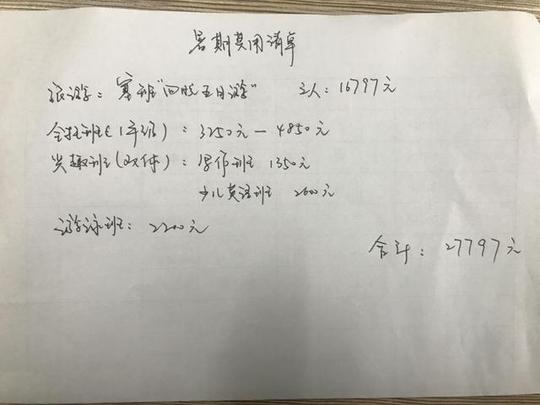 暑期费用清单
旅游：塞班"四晚五日游" 三人：16797元
全托班(1年级)：3250元—4850元
兴趣班(已付)：写作班 1350元
少儿英语班 2600元
游泳班：2200元
合计：27797元